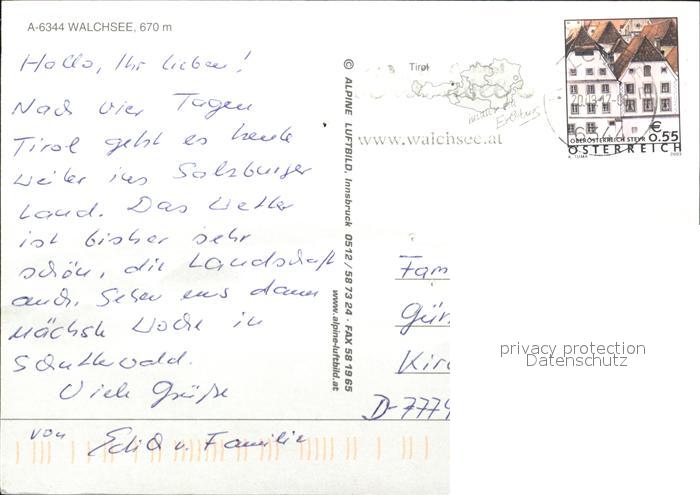 A-6344 WALCHSEE, 670 m
Hallo, Ihr Lieben!
Nach vier Tagen
Tirol geht es heute
weiter ins Salzburger
Land. Das Wetter
ist bisher sehr
schön, die Landschaft
auch. Sehen uns dann
nächste Woche in
Viele Grüße
von
u. Familie
© ALPINE LUFTBILD, Innsbruck 0512 / 58 73 24 · FAX 58 19 65
www.alpine-luftbild.at
Tirol
www.walchsee.at
OBERÖSTERREICH STEYR
€ 0.55
ÖSTERREICH
A. TUMA 2003
Fam
Gür
Kirc
D-7774
privacy protection
Datenschutz